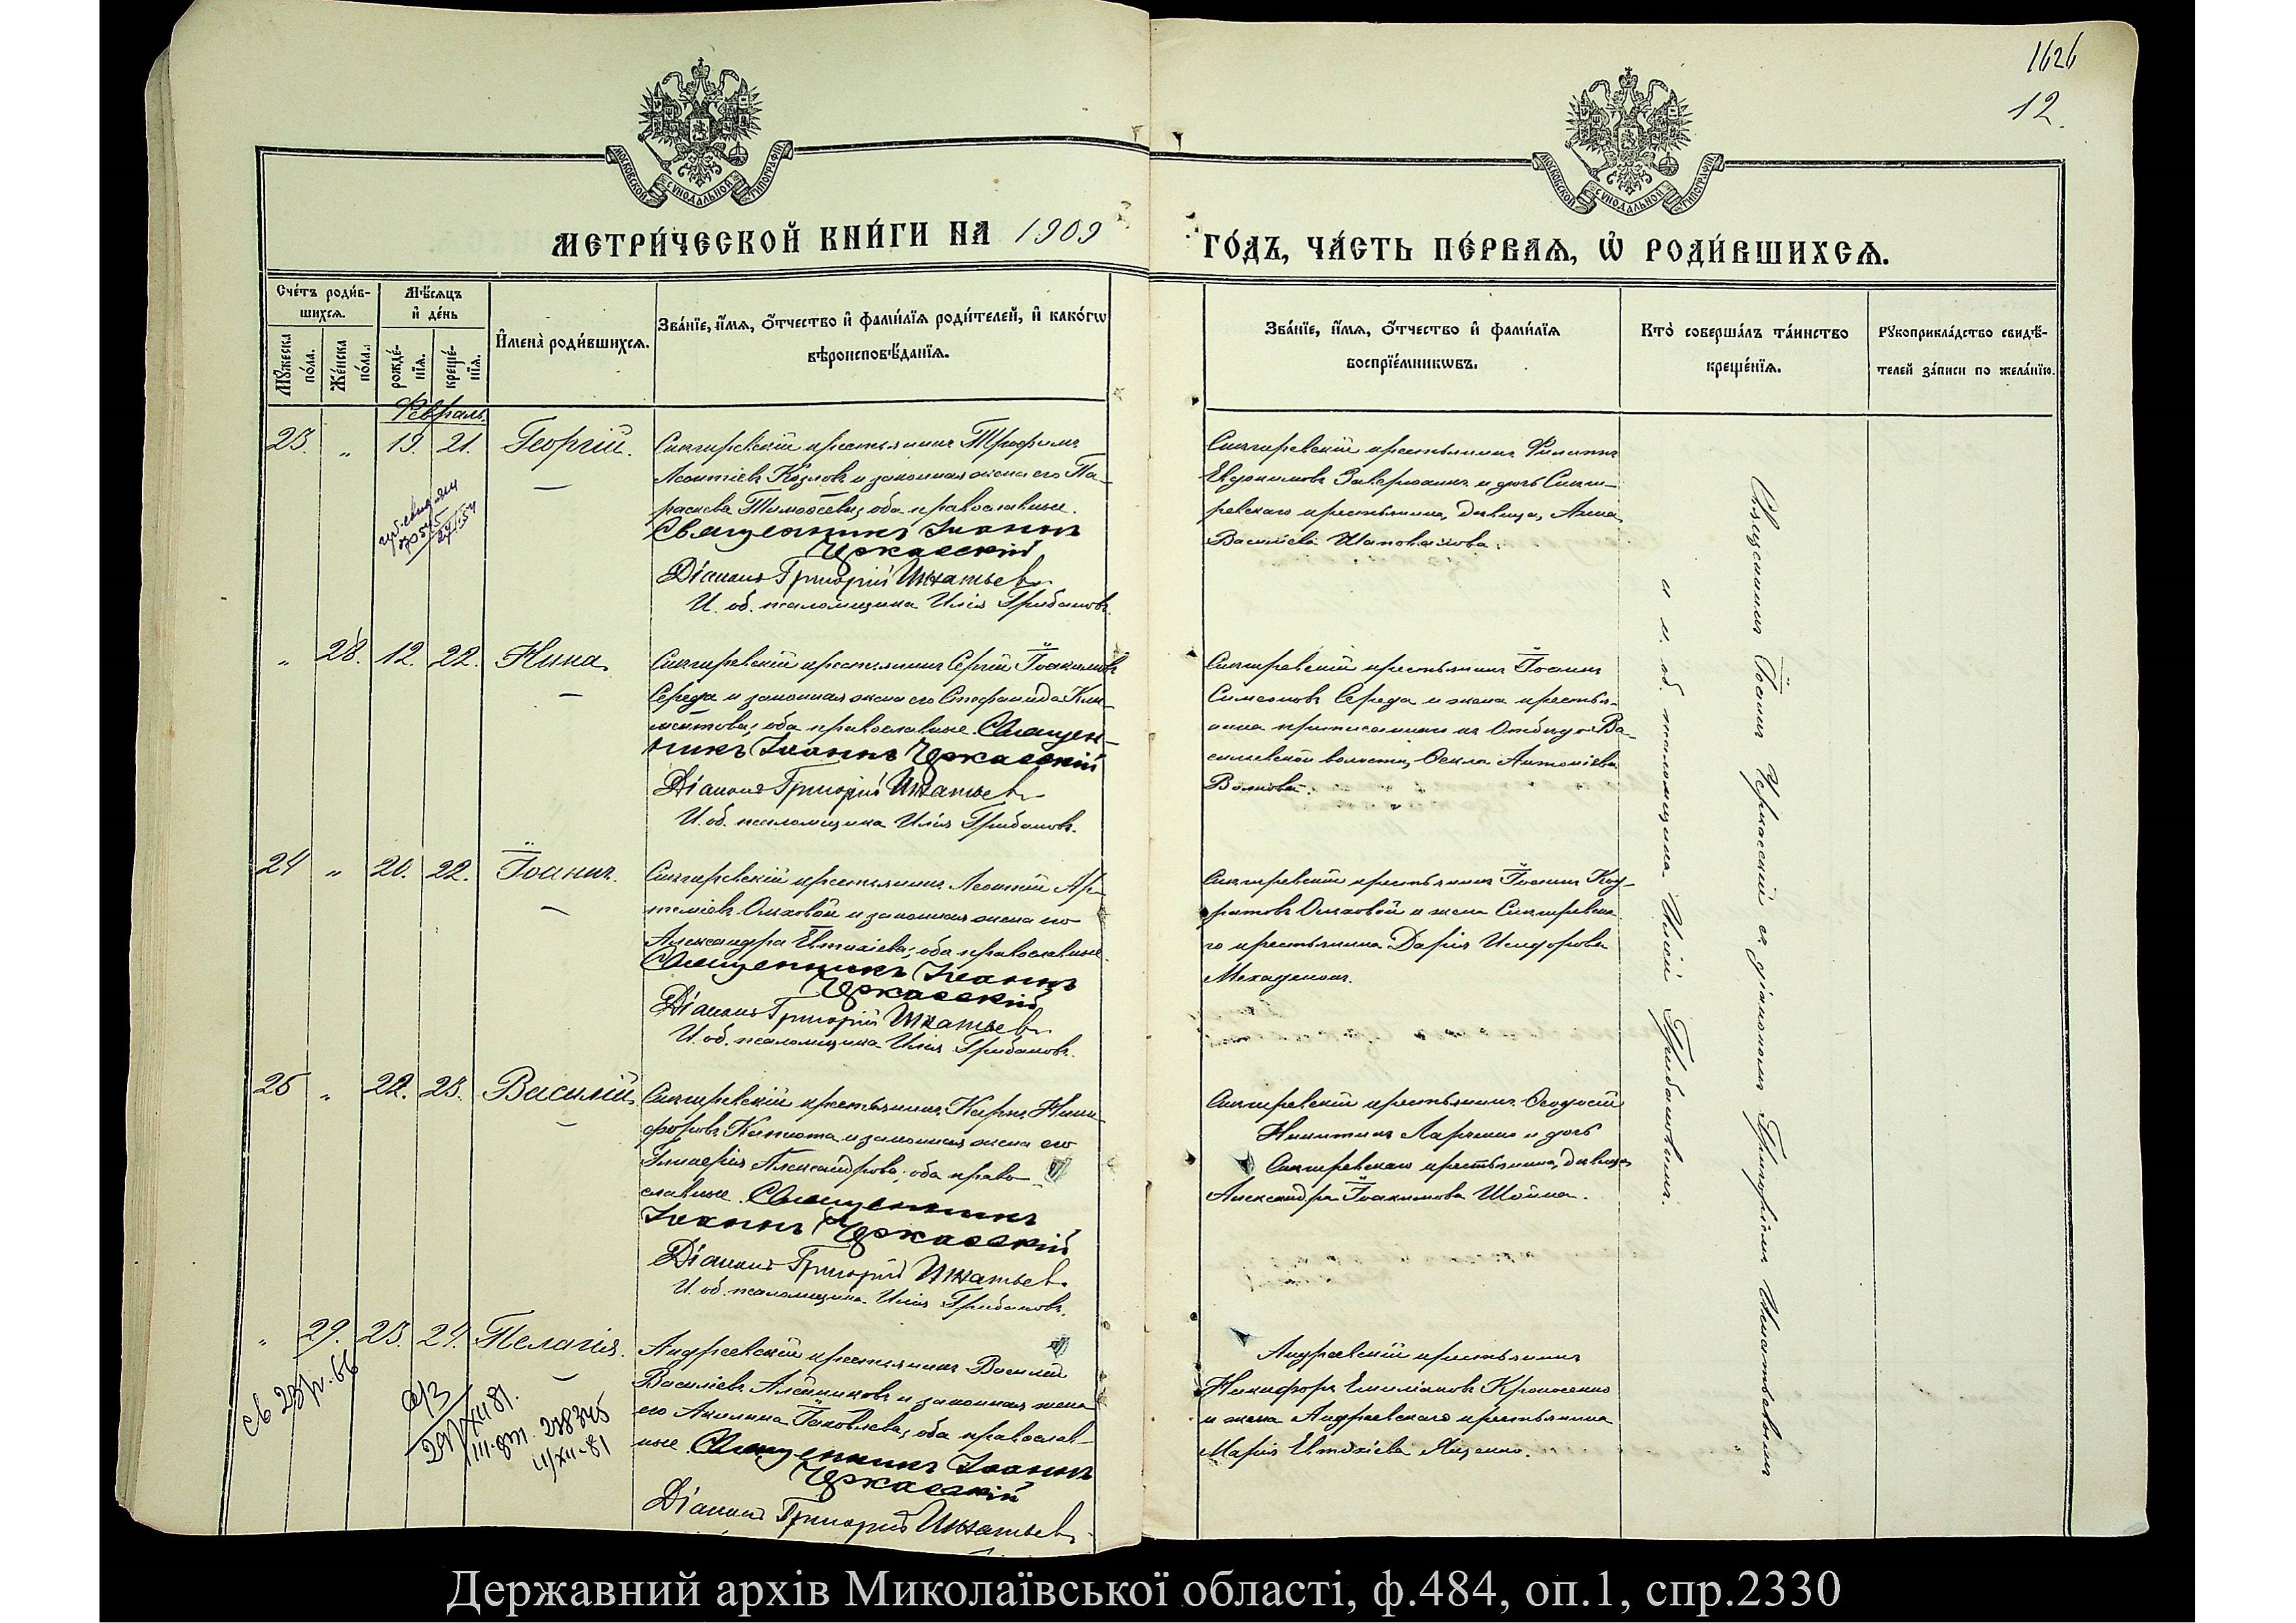 1626
12.
МОСКОВСКОЙ СѴНОДАЛЬНОЙ ТИПОГРАФІИ
МОСКОВСКОЙ СѴНОДАЛЬНОЙ ТИПОГРАФІИ
МЕТРИ́ЧЕСКОЙ КНИ́ГИ НА 1909
ГО́ДЪ, ЧА́СТЬ ПЕ́РВАѦ, Ѡ҆ РОДИ́ВШИХСѦ.
Сче́тъ роди́в-
шихсѧ.
Мꙋ́жеска
по́ла.
Же́нска
по́ла.
Мѣ́сѧцъ
и҆ де́нь
рожде́-
нїѧ.
креще́-
нїѧ.
И҆мена̀ роди́вшихсѧ.
Зва́нїе, и҆́мѧ, ѻ҆́тчество и҆ фами́лїѧ роди́телей, и҆ како́гѡ
вѣроисповѣ́данїѧ.
Зва́нїе, и҆́мѧ, ѻ҆́тчество и҆ фами́лїѧ
воспрїе́мникѡвъ.
Кто̀ соверша́лъ та́инство
креще́нїѧ.
Рꙋкоприкла́дство свидѣ́-
телей за́писи по жела́нїю.
Февраль
23. „ 19. 21. Георгій.
Снигиревскій крестьянинъ Трофимъ
Леонтіевъ Козловъ и законная жена его Па-
раскева Тимоѳеева; оба православные.
Священникъ Іоаннъ
Черкасскій
Діаконъ Григорій Игнатьев
И. об. псаломщика Илія Грибановъ.
Снигиревскій крестьянинъ Филиппъ
Евдокимовъ и дочь Сниги-
ревскаго крестьянина, дѣвица, Анна
Василіева Шаповалова.
„ 28. 12. 22. Нина.
Снигиревскій крестьянинъ Сергій Іоакимовъ
Середа и законная жена его Стефанида Кли-
ментова; оба православные. Священ-
никъ Іоаннъ Черкасскій
Діаконъ Григорій Игнатьев
И. об. псаломщика Илія Грибановъ.
Снигиревскій крестьянинъ Іоаннъ
Симеоновъ Середа и жена крестья-
нина Ва-
сильевской волости, Ѳекла Антоніева
Волкова.
24 „ 20. 22. Іоаннъ.
Снигиревскій крестьянинъ Леонтій Ар-
теміевъ Ольховой и законная жена его
Александра Евтихіева; оба православные.
Священникъ Іоаннъ
Черкасскій
Діаконъ Григорій Игнатьев
И. об. псаломщика Илія Грибановъ.
Снигиревскій крестьянинъ Іоаннъ Код-
ратовъ Ольховой и жена Снигиревска-
го крестьянина Дарія Исидорова
25 „ 22. 23. Василій.
Снигиревскій крестьянинъ Карпъ Ники-
форовъ и законная жена его
Гликерія Александрова; оба право-
славные. Священникъ
Іоаннъ Черкасскій
Діаконъ Григорій Игнатьев.
И. об. псаломщика Илія Грибановъ.
Снигиревскій крестьянинъ Ѳеодосій
Никитинъ и дочь
Снигиревскаго крестьянина, дѣвица,
Александра Іоакимова
„ 29. 23. 24. Пелагія.
Андреевскій крестьянинъ Василій
Василіевъ Алейниковъ и законная жена
его Акилина Іаковлева; оба православ-
ные. Священникъ Іоаннъ
Черкасскій
Діаконъ Григорій Игнатьев
Андреевскій крестьянинъ
Никифоръ Емиліановъ
и жена Андреевскаго крестьянина
Марія Евтихіева Яценко.
Священникъ Іоаннъ Черкасскій съ діакономъ Григоріемъ Игнатьевымъ
и и. об. псаломщика Иліей Грибановымъ.
Державний архів Миколаївської області, ф.484, оп.1, спр.2330